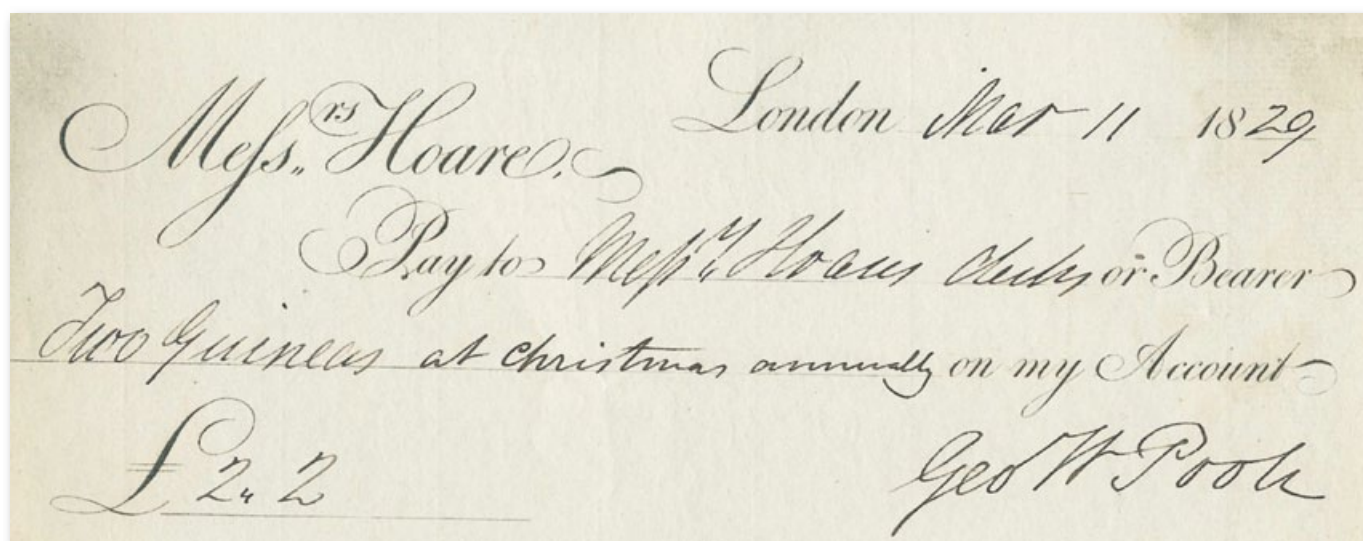 Messrs Hoare. London Mar 11 1829
Pay to Messrs Hoares clerks or Bearer
Two Guineas at Christmas annually on my Account
£2,, 2
Geo W Poole